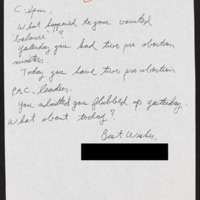 C-Span,
What happened to your vaunted
balance?
Yesterday you had two pro abortion
ministers.
Today you have two pro abortion
CRC leaders.
You admitted you flubbed up yesterday.
What about today?
Best Wishes,